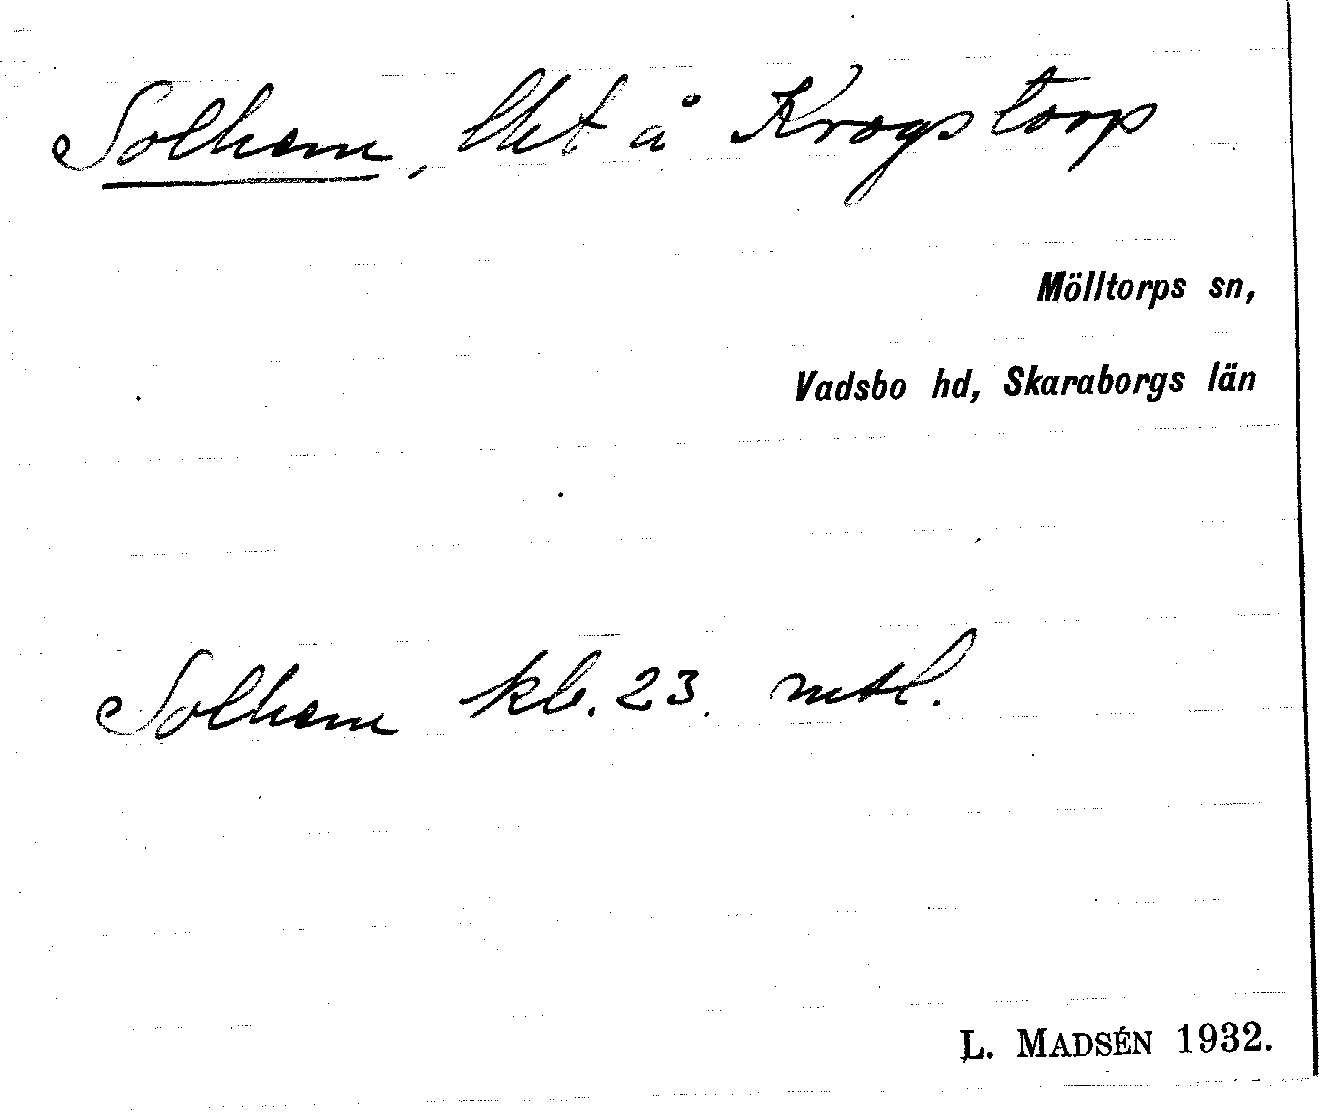 Solhem, lht å Krogstorp
Mölltorps sn,
Vadsbo hd, Skaraborgs län
Solhem kb. 23. mtl.
L. MADSÉN 1932.